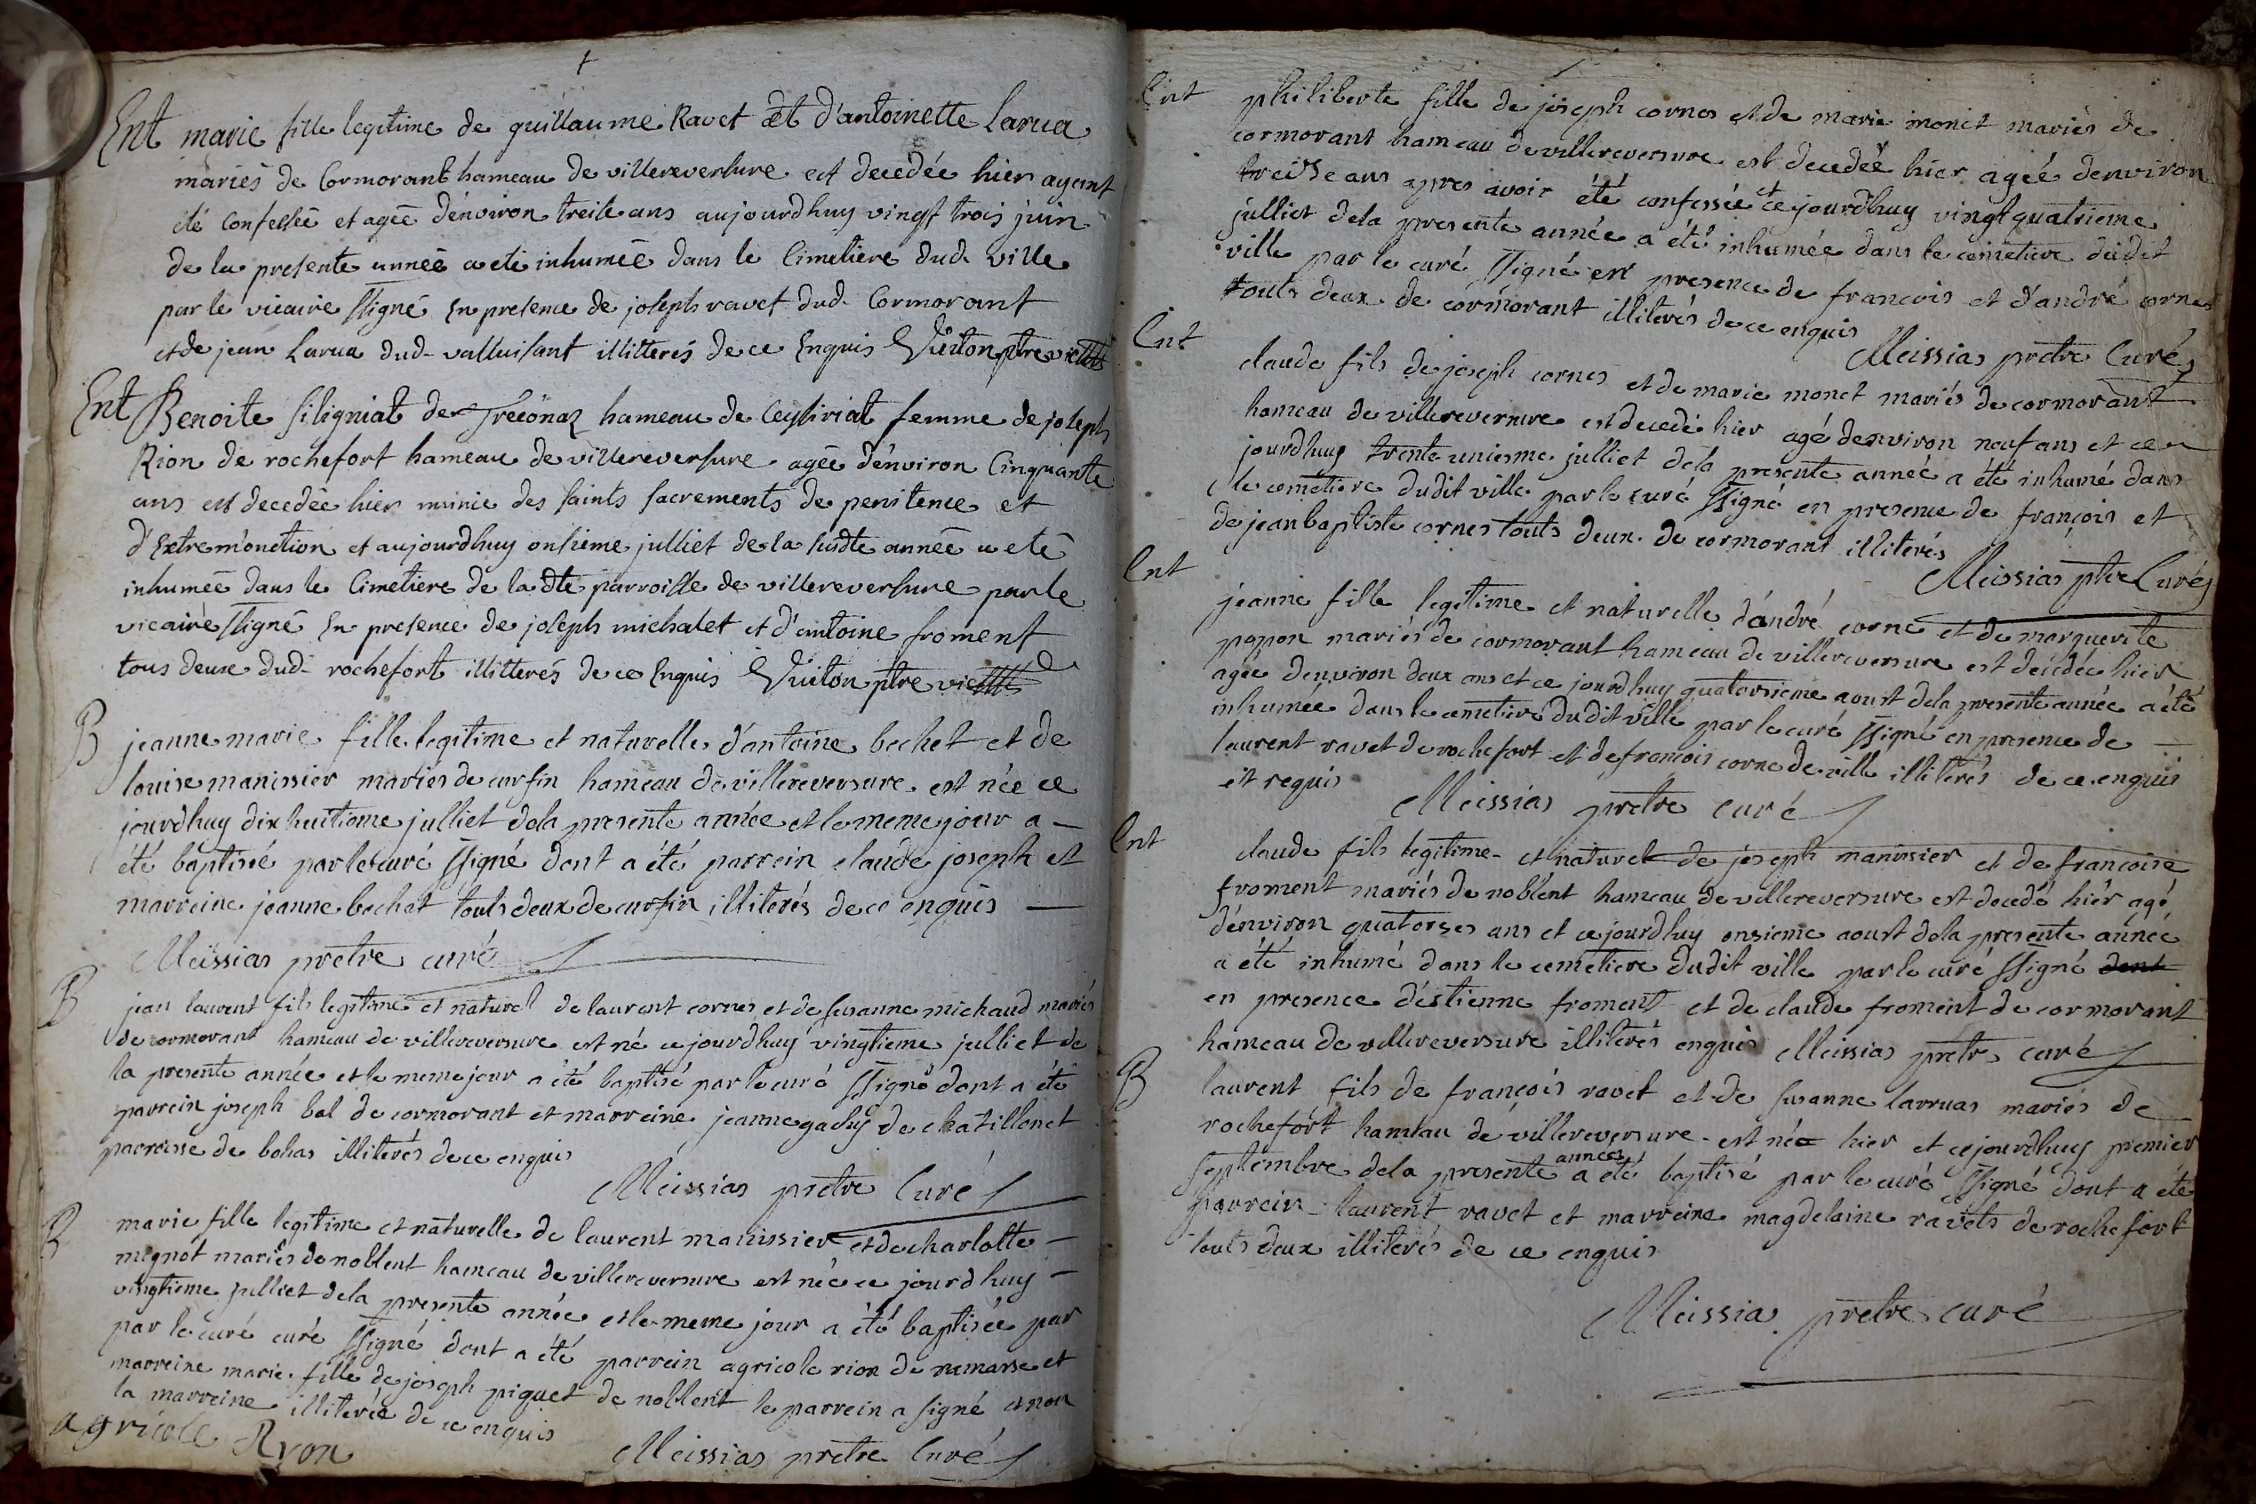 Ent marie fille legitime de guillaume Ravet Et d'antoinette Larua
mariés de Cormorant hameau de villereversure est decedée hier ayant
été Confessée et agée d'environ treise ans aujourdhuy vingt trois juin
de la presente année a eté inhumée dans le Cimetiere dud. ville
par le vicaire ssigné En presence de joseph ravet dud. Cormorant
et de jean Larua dud. valluisant illitterés de ce Enquis Vuiton ptre vic
Ent Benoite siligniat de Treconaz hameau de Ceysiriat femme de joseph
Rion de rochefort hameau de villereversure agée d'environ Cinquante
ans est decedée hier munie des saints sacrements de penitence et
d'Extremonction et aujourdhuy onsieme julliet de la susdte année a eté
inhumée dans le Cimetiere de la dte parroisse de villereversure par le
vicaire ssigné En presence de joseph michalet et d'antoine froment
tous deux dud. rochefort illitterés de ce Enquis Vuiton ptre vic
B jeanne marie fille legitime et naturelle d'antoine bechet et de
louise manissier mariés de curfin hameau de villereversure est née ce
jourdhuy dix huitieme julliet dela presente année et le meme jour a
été baptisée par le curé ssigné dont a été parrein claude joseph et
marreine jeanne bechet touts deux de curfin illiterés de ce enquis
Meissias pretre curé
B jean laurent fils legitime et naturel de laurent cornes et de susanne michaud mariés
de cormorant hameau de villereversure est né ce jourdhuy vingtieme julliet de
la presente année et le meme jour a été baptisé par le curé ssigné dont a été
parrein joseph bal de cormorant et marreine jeanne gachy de chatillonet
parroisse de bohas illiterés de ce enquis
Meissias pretre Curé
B marie fille legitime et naturelle de laurent manissier et de charlotte
mignot mariés de noblent hameau de villereversure est née ce jourdhuy
vingtieme julliet dela presente année et le meme jour a été baptisée par
par le curé curé ssigné dont a été parrein agricole rion de ramasse et
marreine marie fille de joseph piquet de noblent le parrein a signé et non
la marreine illiterée de ce enquis
agricole Ryon Meissias pretre Curé
Ent philiberte fille de joseph cornes et de marie monet mariés de
cormorant hameau de villereversure est decedée hier agée denviron
treise ans apres avoir été confessée et ce jourdhuy vingt quatrieme
julliet dela presente année a été inhumée dans le cemetiere dudit
ville par le curé ssigné en presence de francois et d'andré cornes
touts deux de cormorant illiterés de ce enquis
Meissias pretre Curé
Ent claude fils de joseph cornes et de marie monet mariés de cormorant
hameau de villereversure est decedé hier agé denviron neuf ans et ce
jourdhuy trente uniesme julliet dela presente année a été inhumé dans
le cemetiere dudit ville par le curé ssigné en presence de françois et
de jean baptiste cornes touts deux de cormorant illiterés
Meissias ptre Curé
Ent jeanne fille legitime et naturelle d'andré corne et de marguerite
popon mariés de cormorant hameau de villereversure est decedée hier
agée denviron deux ans et ce jourdhuy quatorsieme aoust dela presente année a été
inhumée dans le cemetiere dudit ville par le curé ssigné en presence de
laurent ravet de rochefort et de francois corne de ville illiterés de ce enquis
et requis Meissias pretre curé
Ent claude fils legitime et naturel de joseph manissier et de francoise
froment mariés de noblent hameau de villereversure est decedé hier agé
d'environ quatorses ans et ce jourdhuy onsieme aoust dela presente année
a été inhumé dans le cemetiere dudit ville par le curé ssigné dont
en presence d'estienne froment et de claude froment de cormorant
hameau de villereversure illiterés enquis Meissias pretre curé
B laurent fils de françois ravet et de susanne larruas mariés de
rochefort hameau de villereversure est née hier et ce jourdhuy premier
septembre dela presente année a été baptisé par le curé ssigné dont a été
parrein laurent ravet et marreine magdelaine ravets de rochefort
touts deux illiterés de ce enquis
Meissias pretre curé